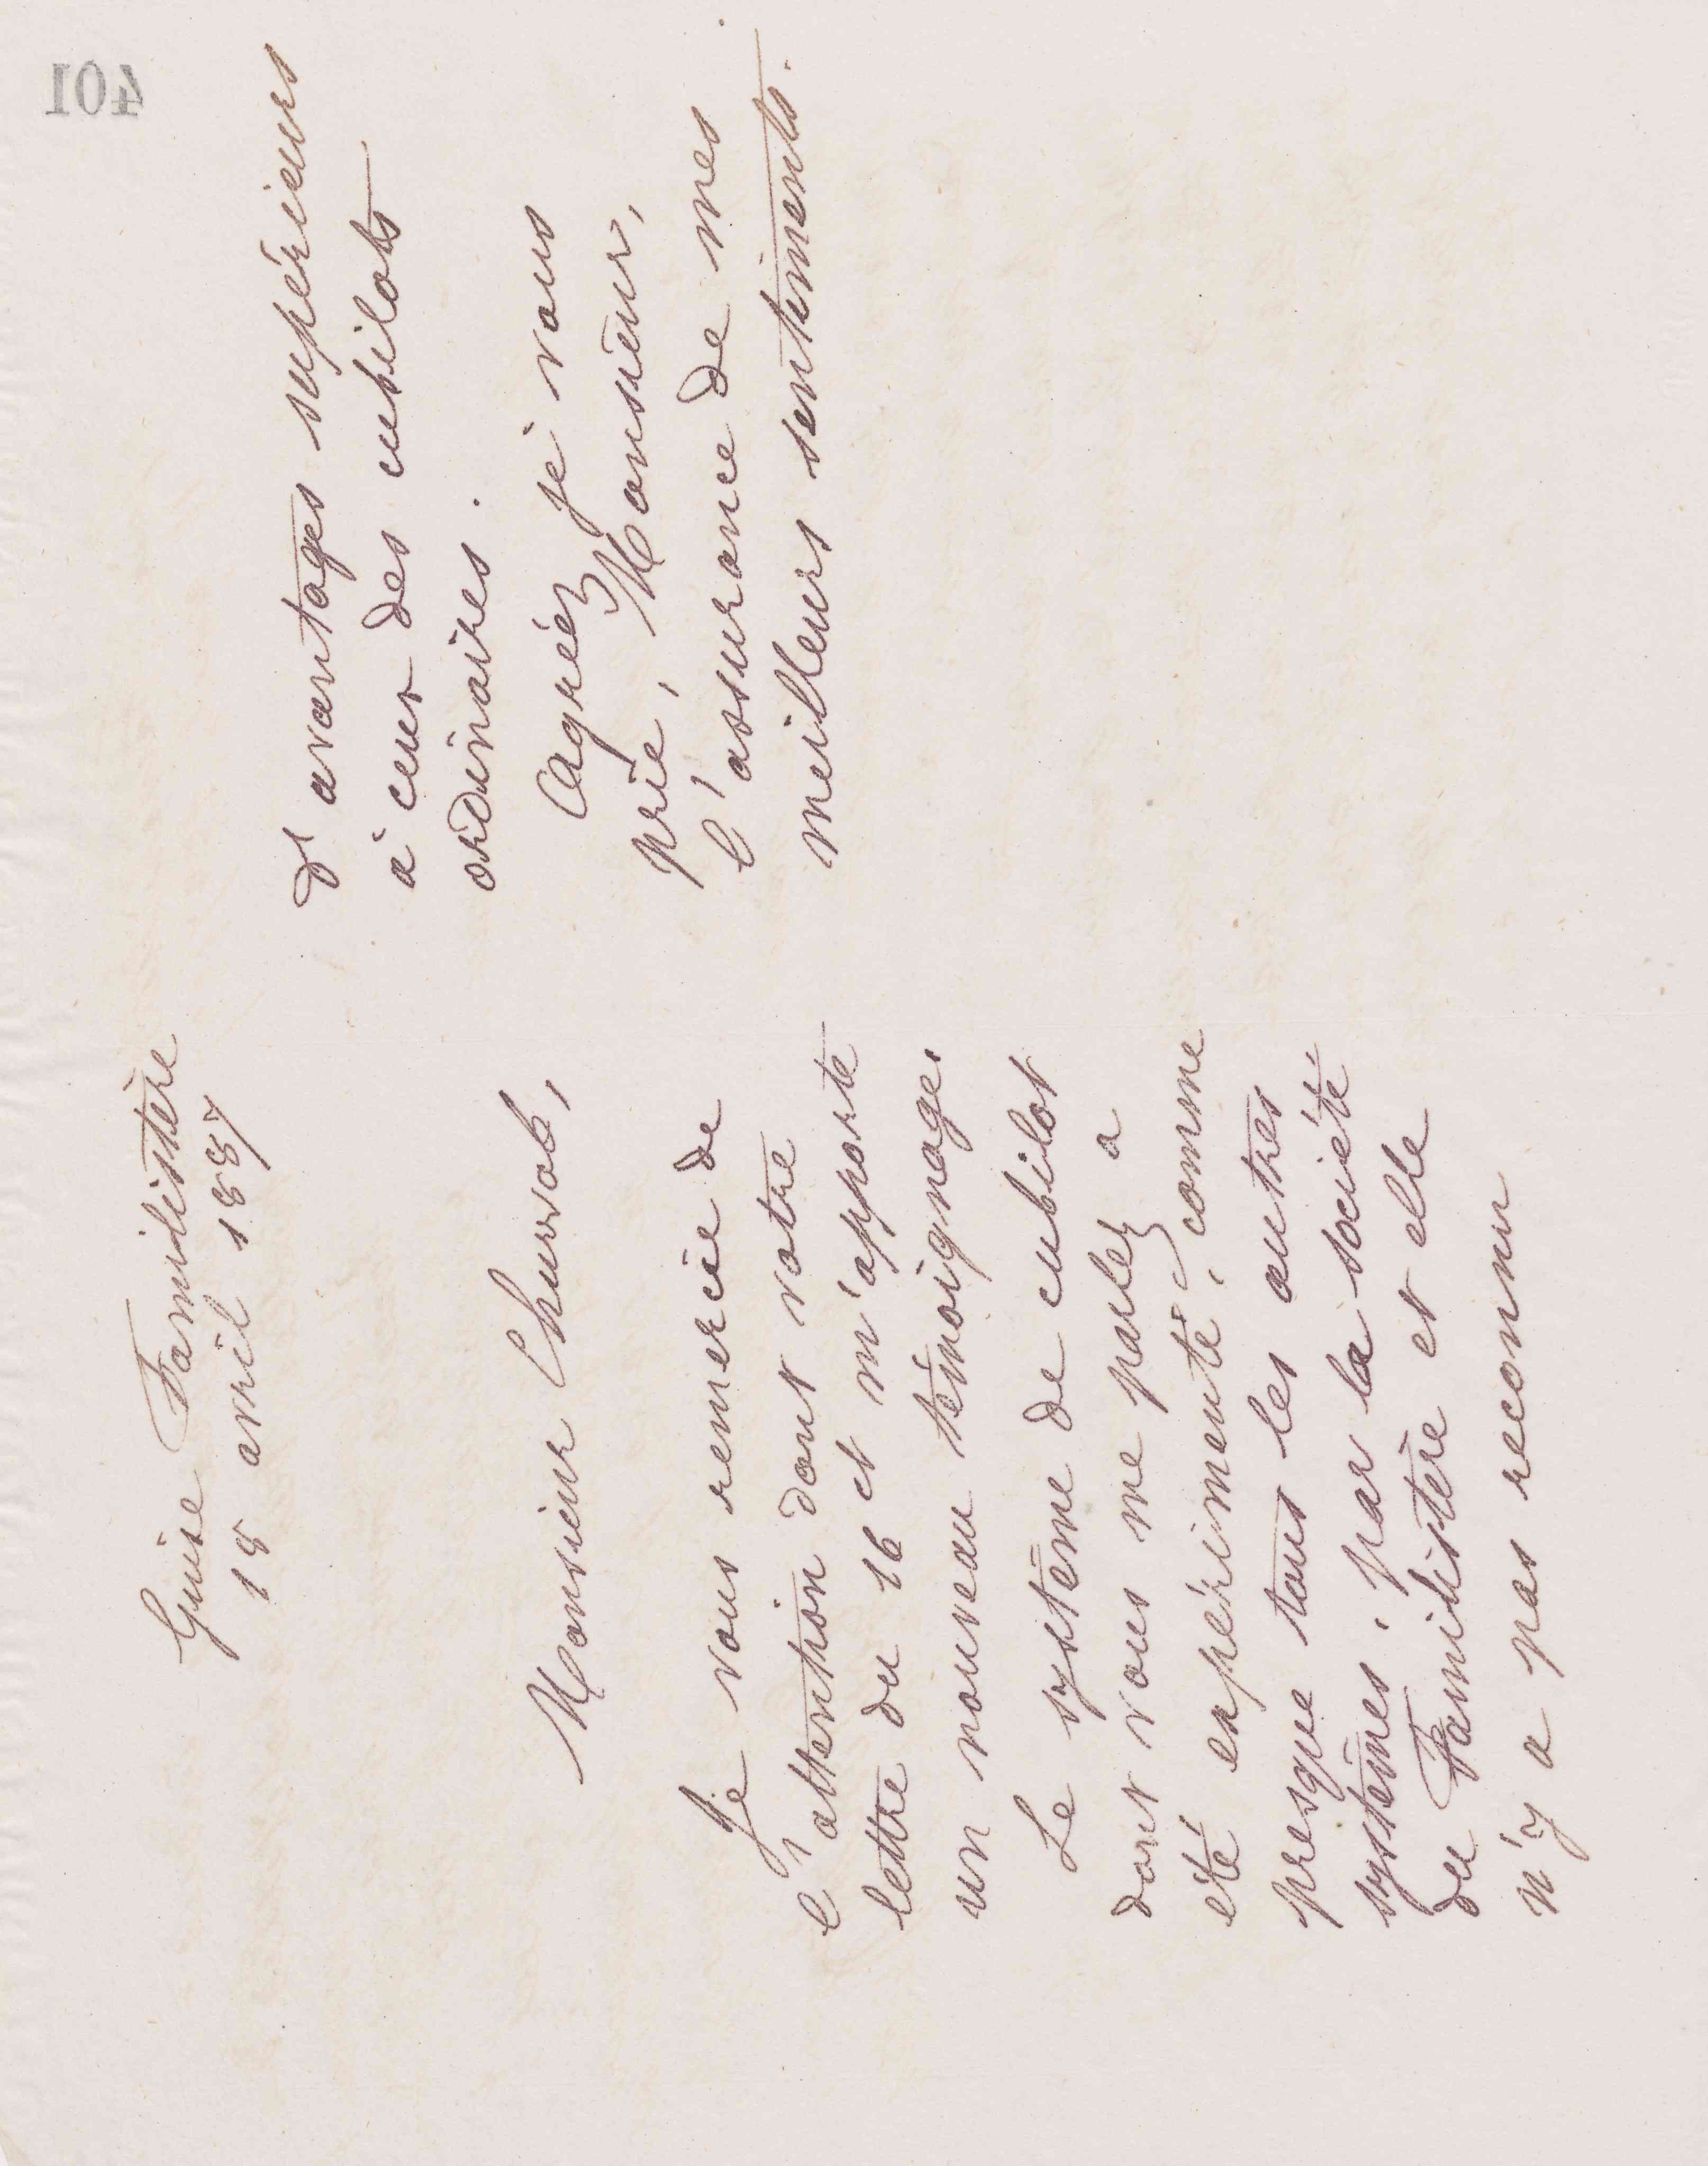 Guise Familistère
18 avril 1887
Monsieur
Je vous remercie de
l'attention dont votre
lettre du 16 ct m'apporte
un nouveau témoignage.
Le système de cubilot
dont vous me parlez a
été expérimenté, comme
presque tous les autres
systèmes, par la société
du Familistère et elle
n'y a pas reconnu
d'avantages supérieurs
à ceux des cubilots
ordinaires.
Agréez je vous
prie, Monsieur,
l'assurance de mes
meilleurs sentiments.
401